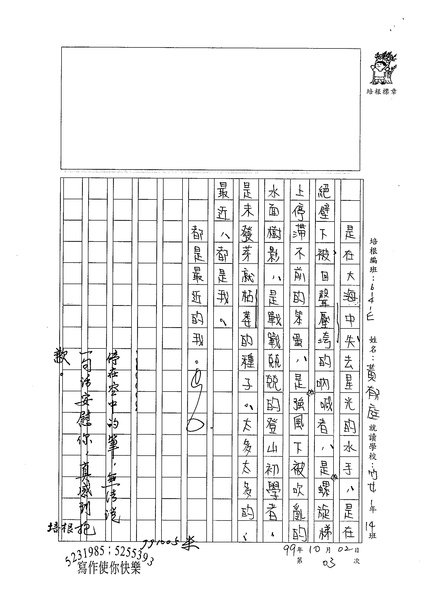 培根標章
培根編班：614E 姓名：黃郁庭 就讀學校：竹女1年14班
是在大海中失去星光的水手，是在
絕壁下被回聲壓垮的吶喊者，是螺旋梯
上停滯不前的笨蛋，是強風下被吹亂的
水面樹影，是戰戰兢兢的登山初學者
是未發芽就枯萎的種子。太多太多的、
最近，都是我。
都是最近的我。
停在空中的筆，無法說
一句話安慰你，真感到抱
歉。
培根
991005
99年10月02日
第03次
5231985；5255393
寫作使你快樂